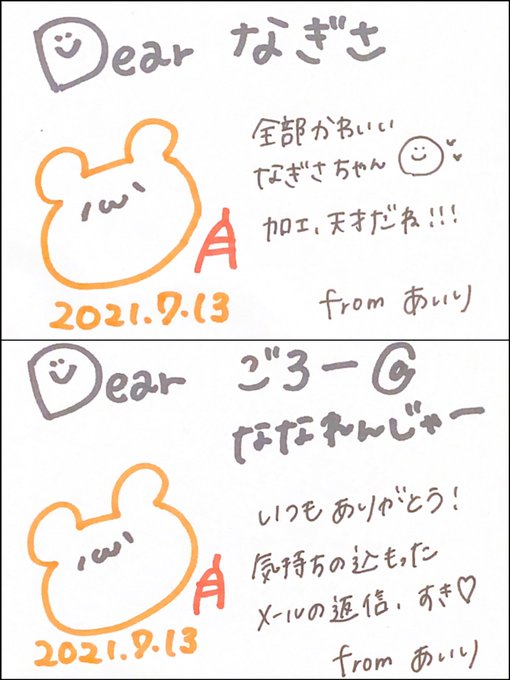 Dear なぎさ
全部かわいい
なぎさちゃん
加工、天才だね!!!
2021.7.13
from あいり
Dear ごろー@
ななれんじゃー
いつもありがとう!
気持ちの込もった
メールの返信、すき♡
2021.7.13
from あいり